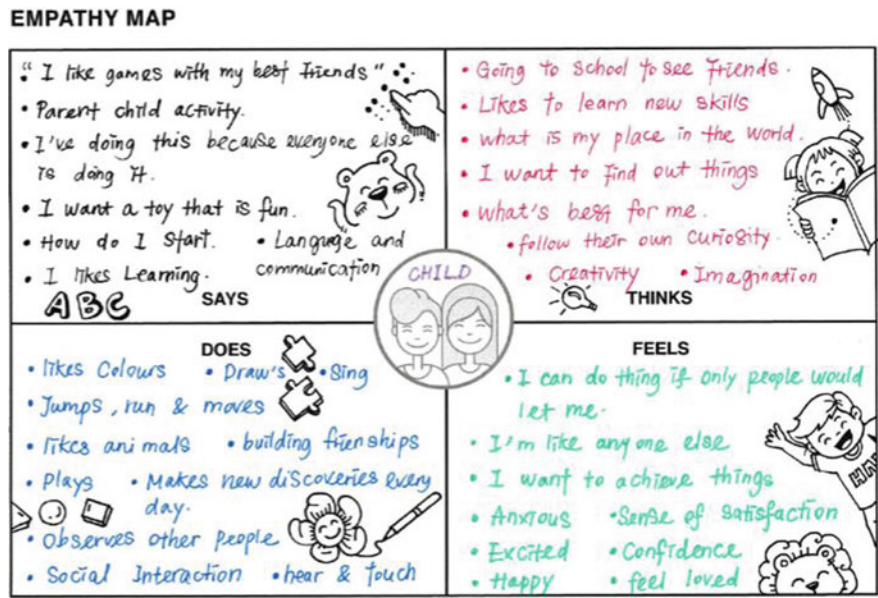 EMPATHY MAP
"I like games with my best friends"
• Parent child activity.
• I've doing this because everyone else
is doing it.
• I want a toy that is fun.
• How do I start.
• Language and
communication
• I likes Learning.
ABC
SAYS
• Going to school to see friends.
• Likes to learn new skills
• what is my place in the world.
• I want to find out things
• what's best for me.
• follow their own curiosity.
• Creativity
• Imagination
THINKS
CHILD
DOES
• likes Colours
• Draw's
• Sing
• Jumps, run & moves
• likes animals
• building frienships
• Plays
• Makes new discoveries every
day.
• Observes other people
• Social Interaction
• hear & touch
FEELS
• I can do thing if only people would
let me.
• I'm like any one else
• I want to achieve things
• Anxious
• Sense of satisfaction
• Excited
• Confidence
• Happy
• feel loved